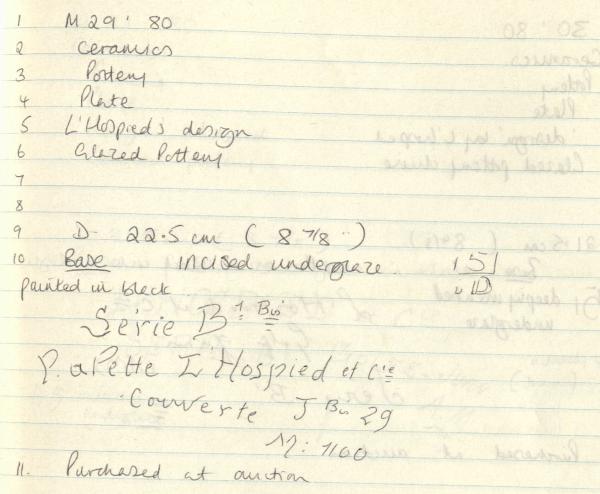 1 M 29 ' 80
2 Ceramics
3 Pottery
4 Plate
5 L'Hospied's design
6 Glazed Pottery
7
8
9 D. 22.5 cm ( 8 7/8 '' )
10 Base incised underglaze 151
painted in black
Série B 1 Bis
Palette L'Hospied et Cie
Couverte J Bis 29
N: 1160
11. Purchased at auction